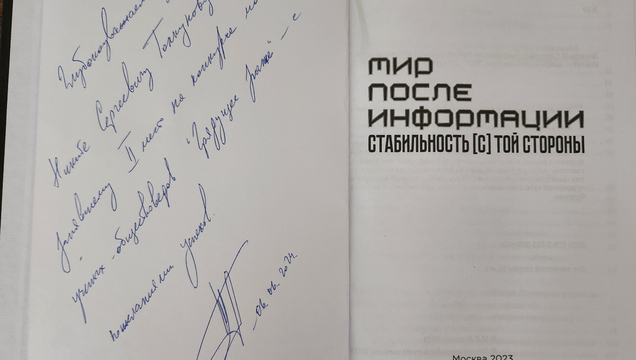 Глубокоуважаемому
Никите Сергеевичу
занявшему II место на конкурсе
ученых-обществоведов "Грядущее рано" – с
пожеланиями успехов.
06.06.2024.
МИР
ПОСЛЕ
ИНФОРМАЦИИ
СТАБИЛЬНОСТЬ [С] ТОЙ СТОРОНЫ
Москва 2023